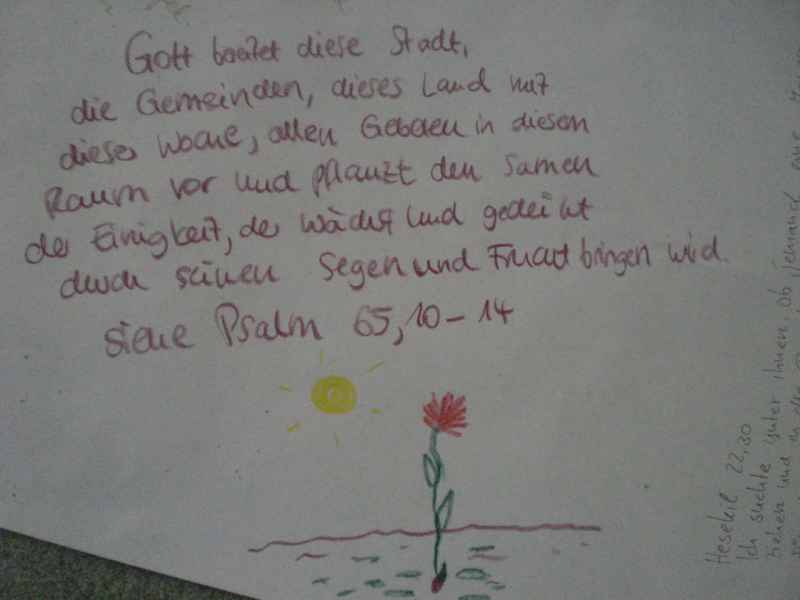 Gott bereitet diese Stadt,
die Gemeinden, dieses Land mit
dieser Woche, allen Gebeten in diesem
Raum vor und pflanzt den Samen
der Einigkeit, der wächst und gedeiht
durch seinen Segen und Frucht bringen wird.
siehe Psalm 65,10-14
Hesekiel 22,30
Ich suchte unter ihnen, ob jemand eine
ziehen und in die